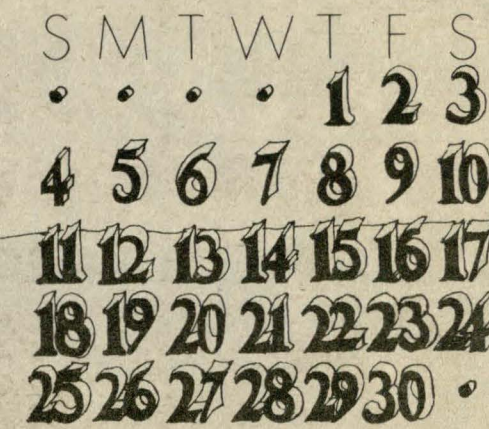 S M T W T F S
• • • • 1 2 3
4 5 6 7 8 9 10
11 12 13 14 15 16 17
18 19 20 21 22 23 24
25 26 27 28 29 30 •